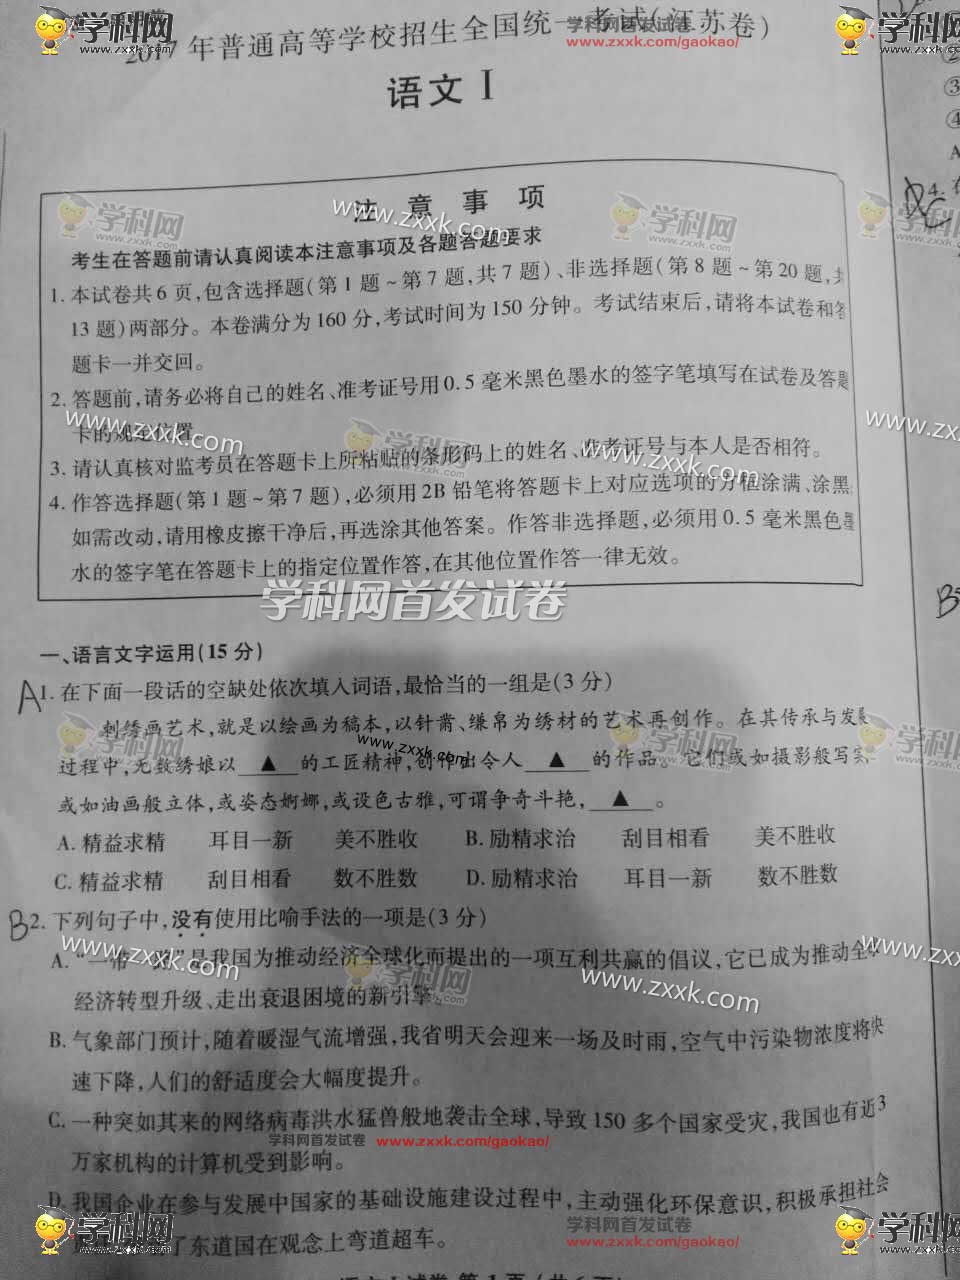 2017年普通高等学校招生全国统一考试(江苏卷)
语文Ⅰ
注意事项
考生在答题前请认真阅读本注意事项及各题答题要求
1. 本试卷共6页,包含选择题(第1题~第7题,共7题)、非选择题(第8题~第20题,共
13题)两部分。本卷满分为160分,考试时间为150分钟。考试结束后,请将本试卷和答
题卡一并交回。
2. 答题前,请务必将自己的姓名、准考证号用0.5毫米黑色墨水的签字笔填写在试卷及答题
卡的规定位置
3. 请认真核对监考员在答题卡上所粘贴的条形码上的姓名、准考证号与本人是否相符。
4. 作答选择题(第1题~第7题),必须用2B铅笔将答题卡上对应选项的方框涂满、涂黑
如需改动,请用橡皮擦干净后,再选涂其他答案。作答非选择题,必须用0.5毫米黑色墨
水的签字笔在答题卡上的指定位置作答,在其他位置作答一律无效。
学科网首发试卷
一、语言文字运用(15分)
A1. 在下面一段话的空缺处依次填入词语,最恰当的一组是(3分)
刺绣画艺术,就是以绘画为稿本,以针黹、缣帛为绣材的艺术再创作。在其传承与发展
过程中,无数绣娘以 ▲ 的工匠精神,创作出令人 ▲ 的作品。它们或如摄影般写实
或如油画般立体,或姿态婀娜,或设色古雅,可谓争奇斗艳, ▲ 。
A. 精益求精 耳目一新 美不胜收 B. 励精求治 刮目相看 美不胜收
C. 精益求精 刮目相看 数不胜数 D. 励精求治 耳目一新 数不胜数
B2. 下列句子中,没有使用比喻手法的一项是(3分)
A. “一带一路”是我国为推动经济全球化而提出的一项互利共赢的倡议,它已成为推动全
经济转型升级、走出衰退困境的新引擎。
B. 气象部门预计,随着暖湿气流增强,我省明天会迎来一场及时雨,空气中污染物浓度将快
速下降,人们的舒适度会大幅度提升。
C. 一种突如其来的网络病毒洪水猛兽般地袭击全球,导致150多个国家受灾,我国也有近3
万家机构的计算机受到影响。
学科网首发试卷 www.zxxk.com/gaokao/
D. 我国企业在参与发展中国家的基础设施建设过程中,主动强化环保意识,积极承担社会
了东道国在观念上弯道超车。
学科网首发试卷
www.zxxk.com/gaokao/
学科网
zxxk.com
www.zxxk.com